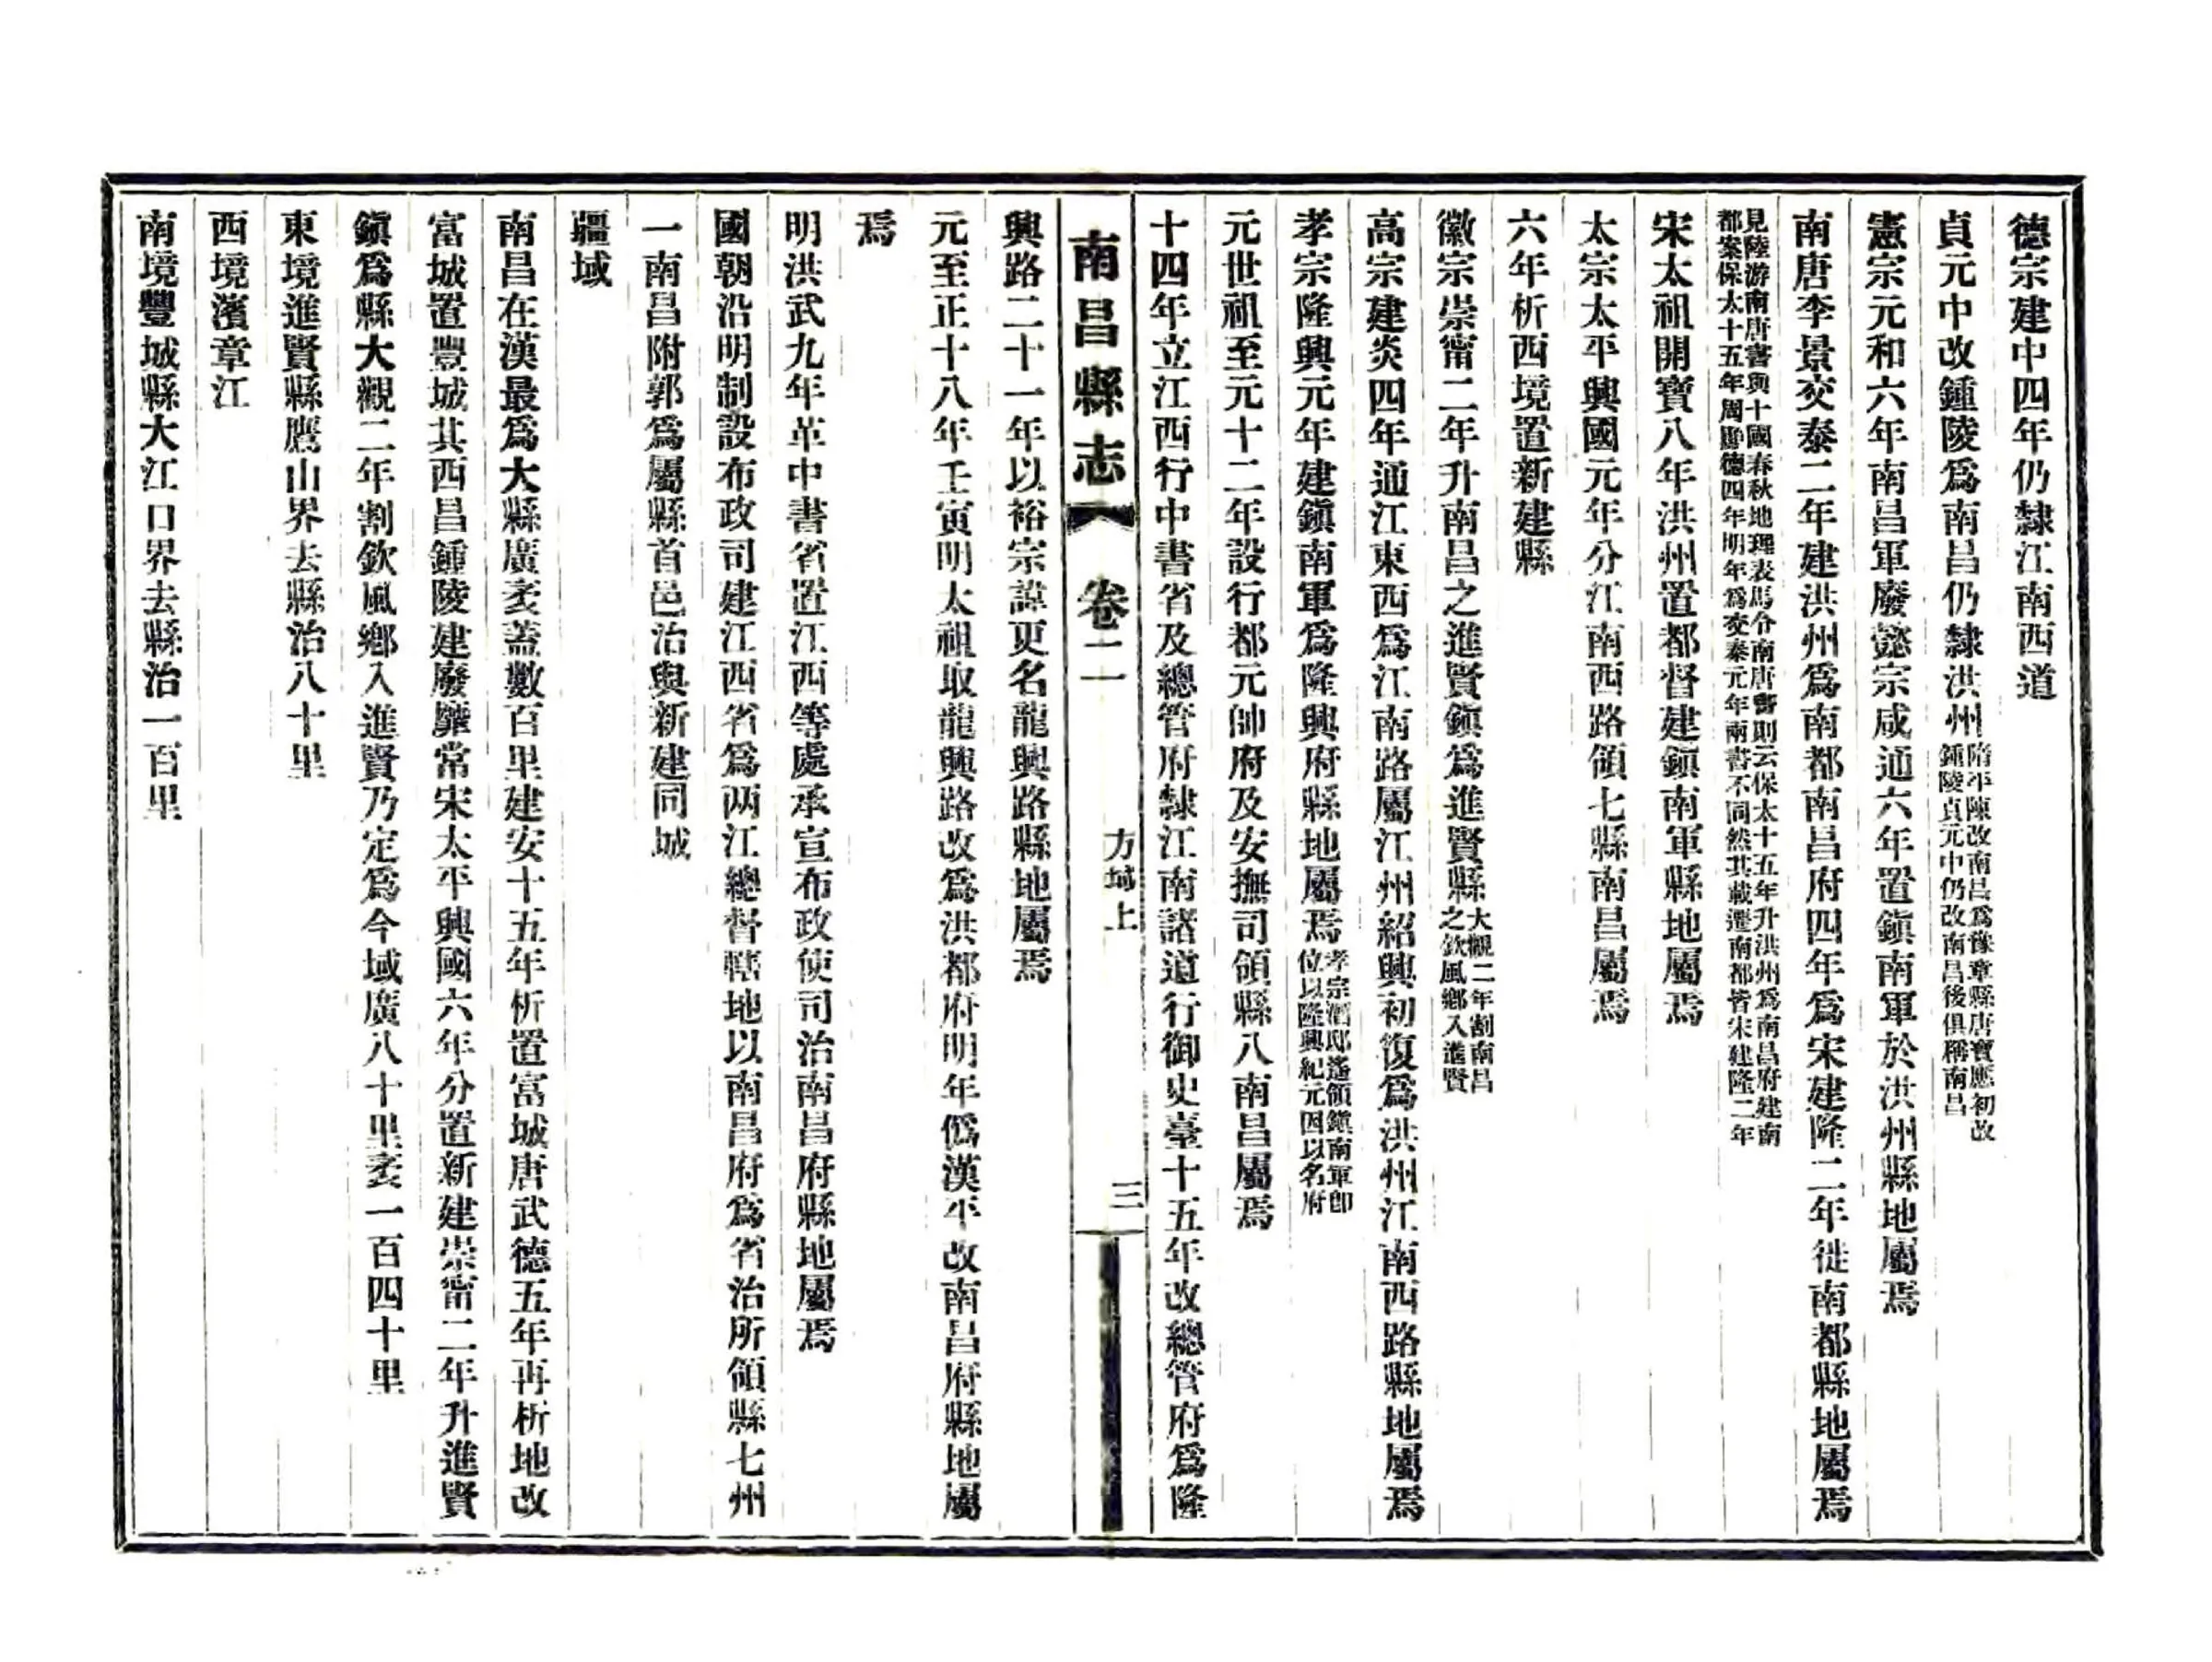 德宗建中四年仍隸江南西道
貞元中改鍾陵爲南昌仍隸洪州隋平陳改南昌爲豫章縣唐寶應初改
鍾陵貞元中仍改南昌後俱稱南昌
憲宗元和六年南昌軍廢懿宗咸通六年置鎮南軍於洪州縣地屬焉
南唐李景交泰二年建洪州爲南都南昌府四年爲宋建隆二年徙南都縣地屬焉
見陸游南唐書與十國春秋地理表馬令南唐書則云保太十五年升洪州爲南昌府建南
都案保太十五年周顯德四年明年爲交泰元年兩書不同然其載遷南都皆宋建隆二年
宋太祖開寶八年洪州置都督建鎮南軍縣地屬焉
太宗太平興國元年分江南西路領七縣南昌屬焉
六年析西境置新建縣
徽宗崇甯二年升南昌之進賢鎮爲進賢縣大觀二年割南昌
之欽風鄉入進賢
高宗建炎四年通江東西爲江南路屬江州紹興初復爲洪州江南西路縣地屬焉
孝宗隆興元年建鎮南軍爲隆興府縣地屬焉孝宗潛邸遙領鎮南軍卽
位以隆興紀元因以名府
元世祖至元十二年設行都元帥府及安撫司領縣八南昌屬焉
十四年立江西行中書省及總管府隸江南諸道行御史臺十五年改總管府爲隆
南昌縣志 卷二 方域上 三
興路二十一年以裕宗諱更名龍興路縣地屬焉
元至正十八年壬寅明太祖取龍興路改爲洪都府明年僞漢平改南昌府縣地屬
焉
明洪武九年革中書省置江西等處承宣布政使司治南昌府縣地屬焉
國朝沿明制設布政司建江西省爲两江總督轄地以南昌府爲省治所領縣七州
一南昌附郭爲屬縣首邑治與新建同城
疆域
南昌在漢最爲大縣廣袤蓋數百里建安十五年析置富城唐武德五年再析地改
富城置豐城其西昌鍾陵建廢靡常宋太平興國六年分置新建崇甯二年升進賢
鎮爲縣大觀二年割欽風鄉入進賢乃定爲今域廣八十里袤一百四十里
東境進賢縣鷹山界去縣治八十里
西境濱章江
南境豐城縣大江口界去縣治一百里